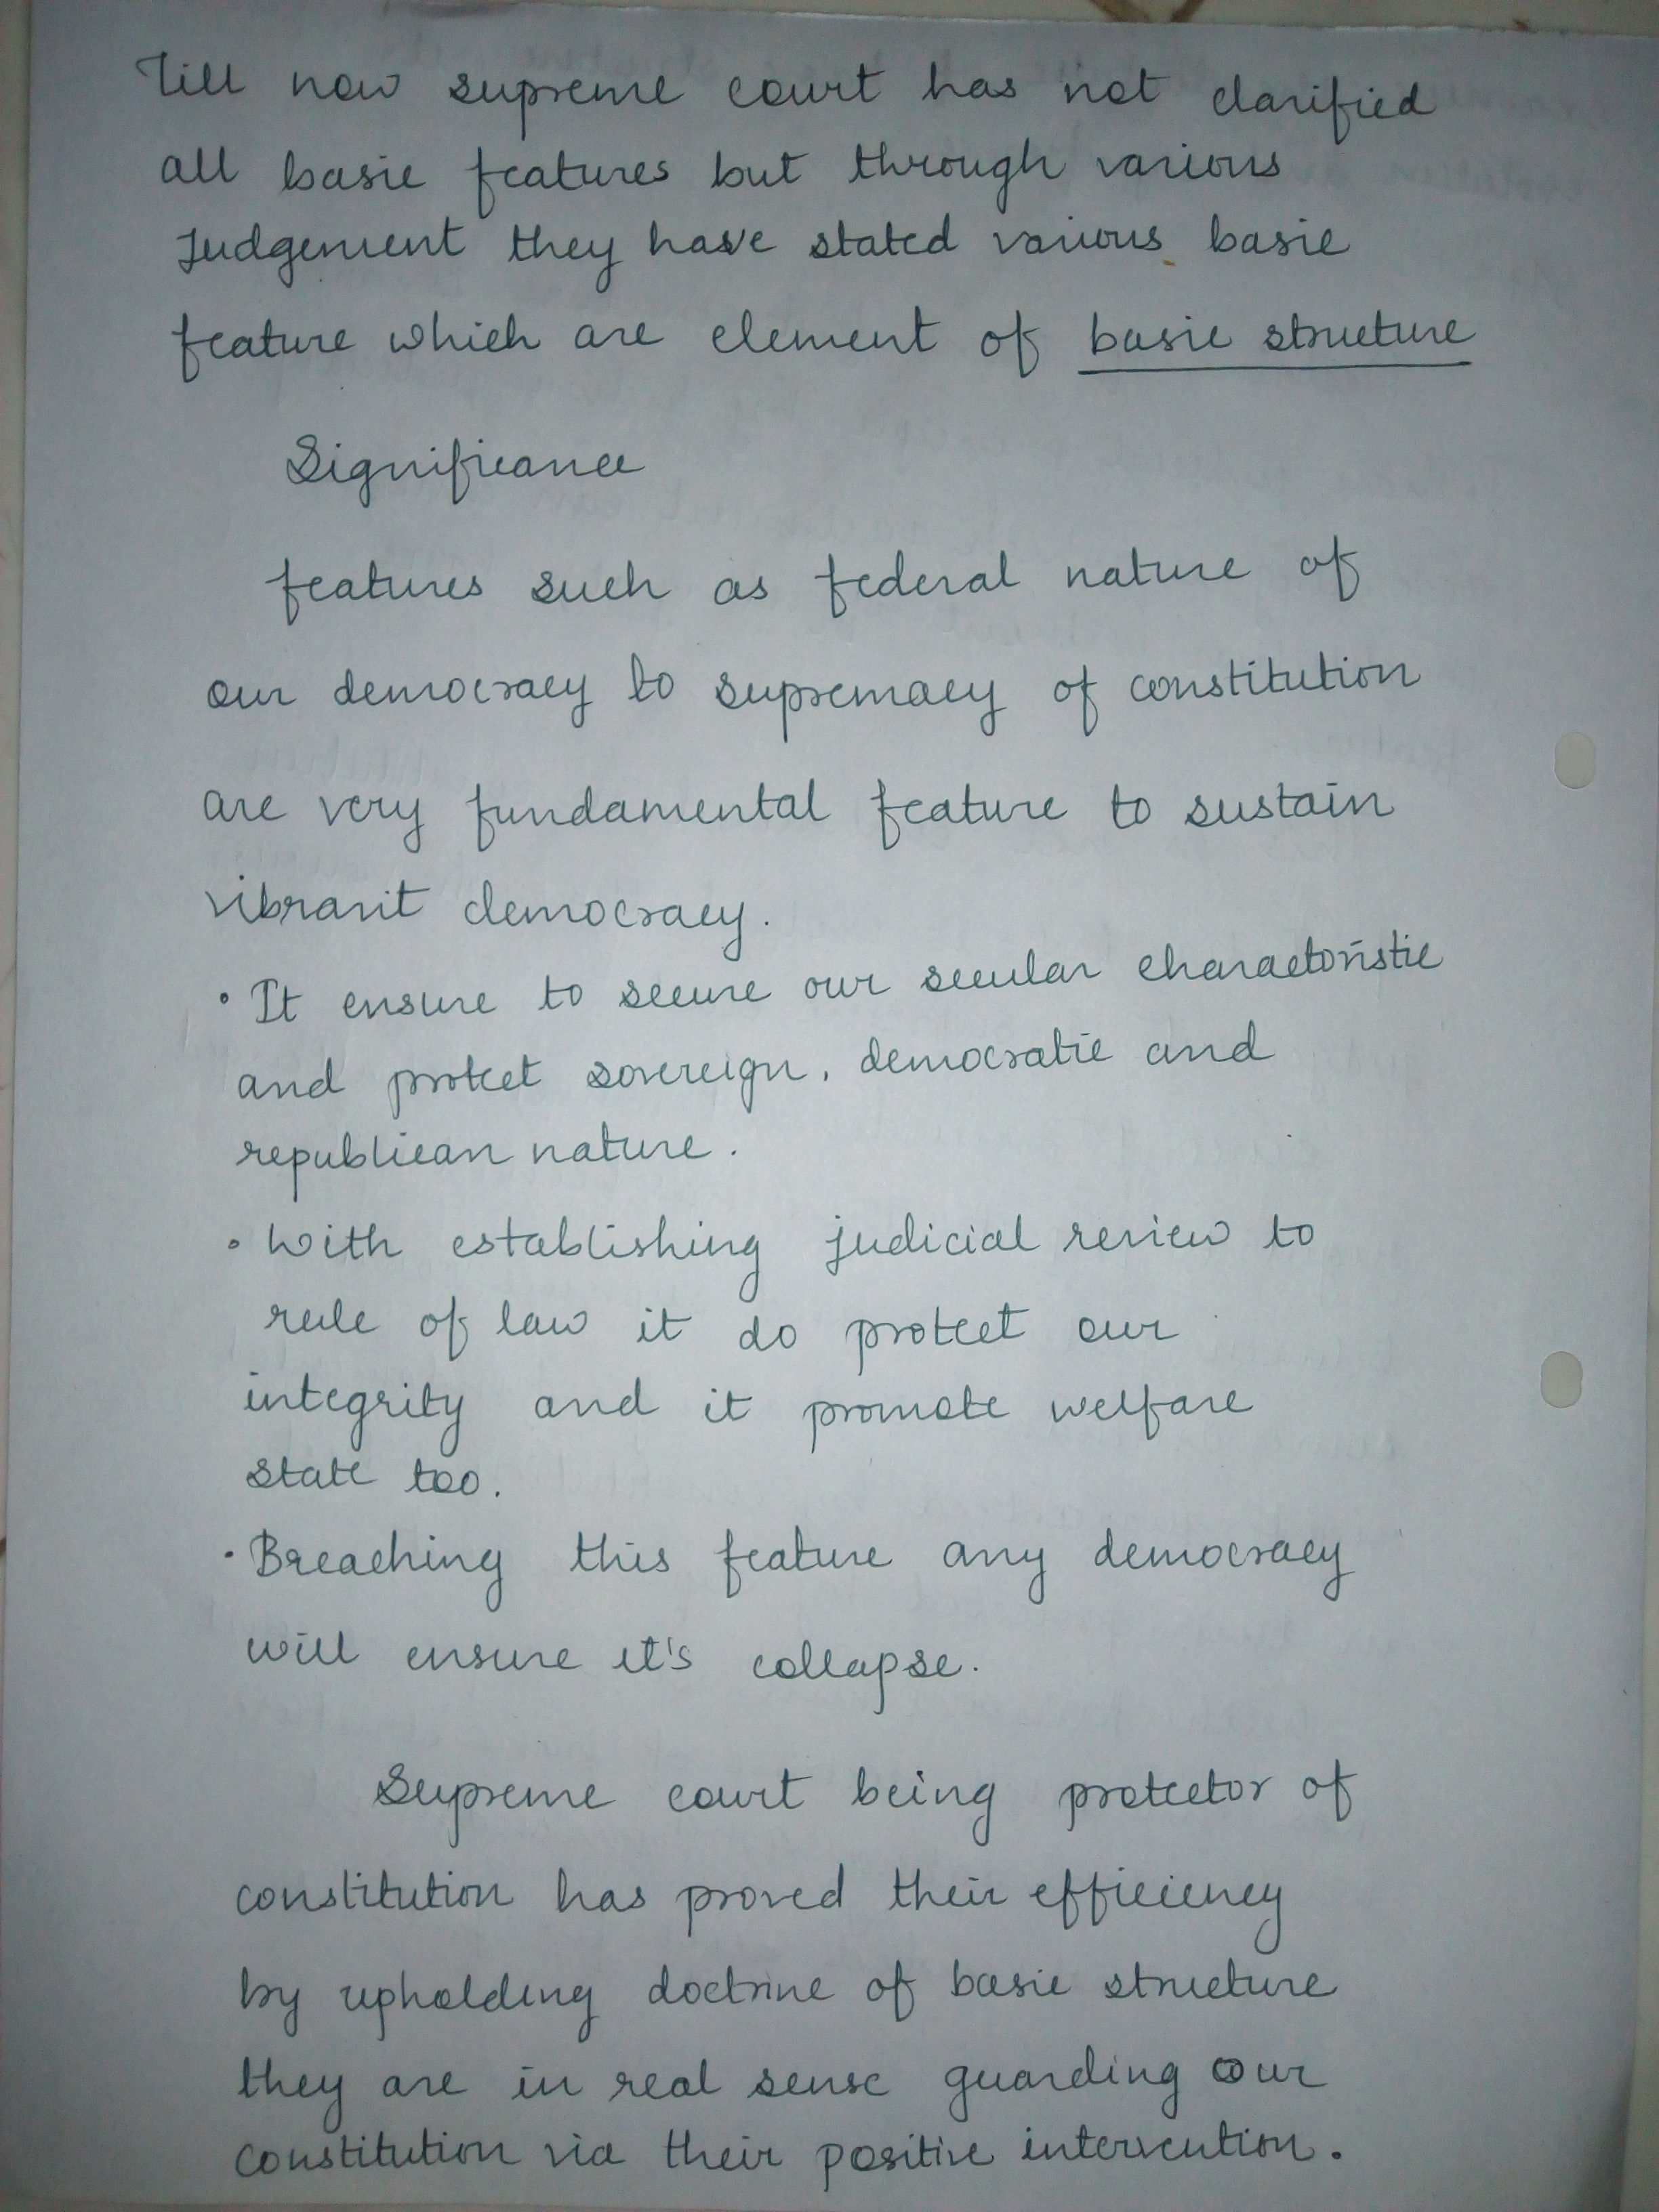 Till now supreme court has not clarified
all basic features but through various
Judgement they have stated various basic
feature which are element of basic structure
Significance
features such as federal nature of
our democracy to supremacy of constitution
are very fundamental feature to sustain
vibrant democracy.
• It ensure to secure our secular charactoristic
and protect sovereign, democratic and
republican nature.
• With establishing judicial review to
rule of law it do protect our
integrity and it promote welfare
state too.
• Breaching this feature any democracy
will ensure it's collapse.
Supreme court being protector of
constitution has proved their efficiency
by upholding doctrine of basic structure
they are in real sense guarding our
constitution via their positive intervention.